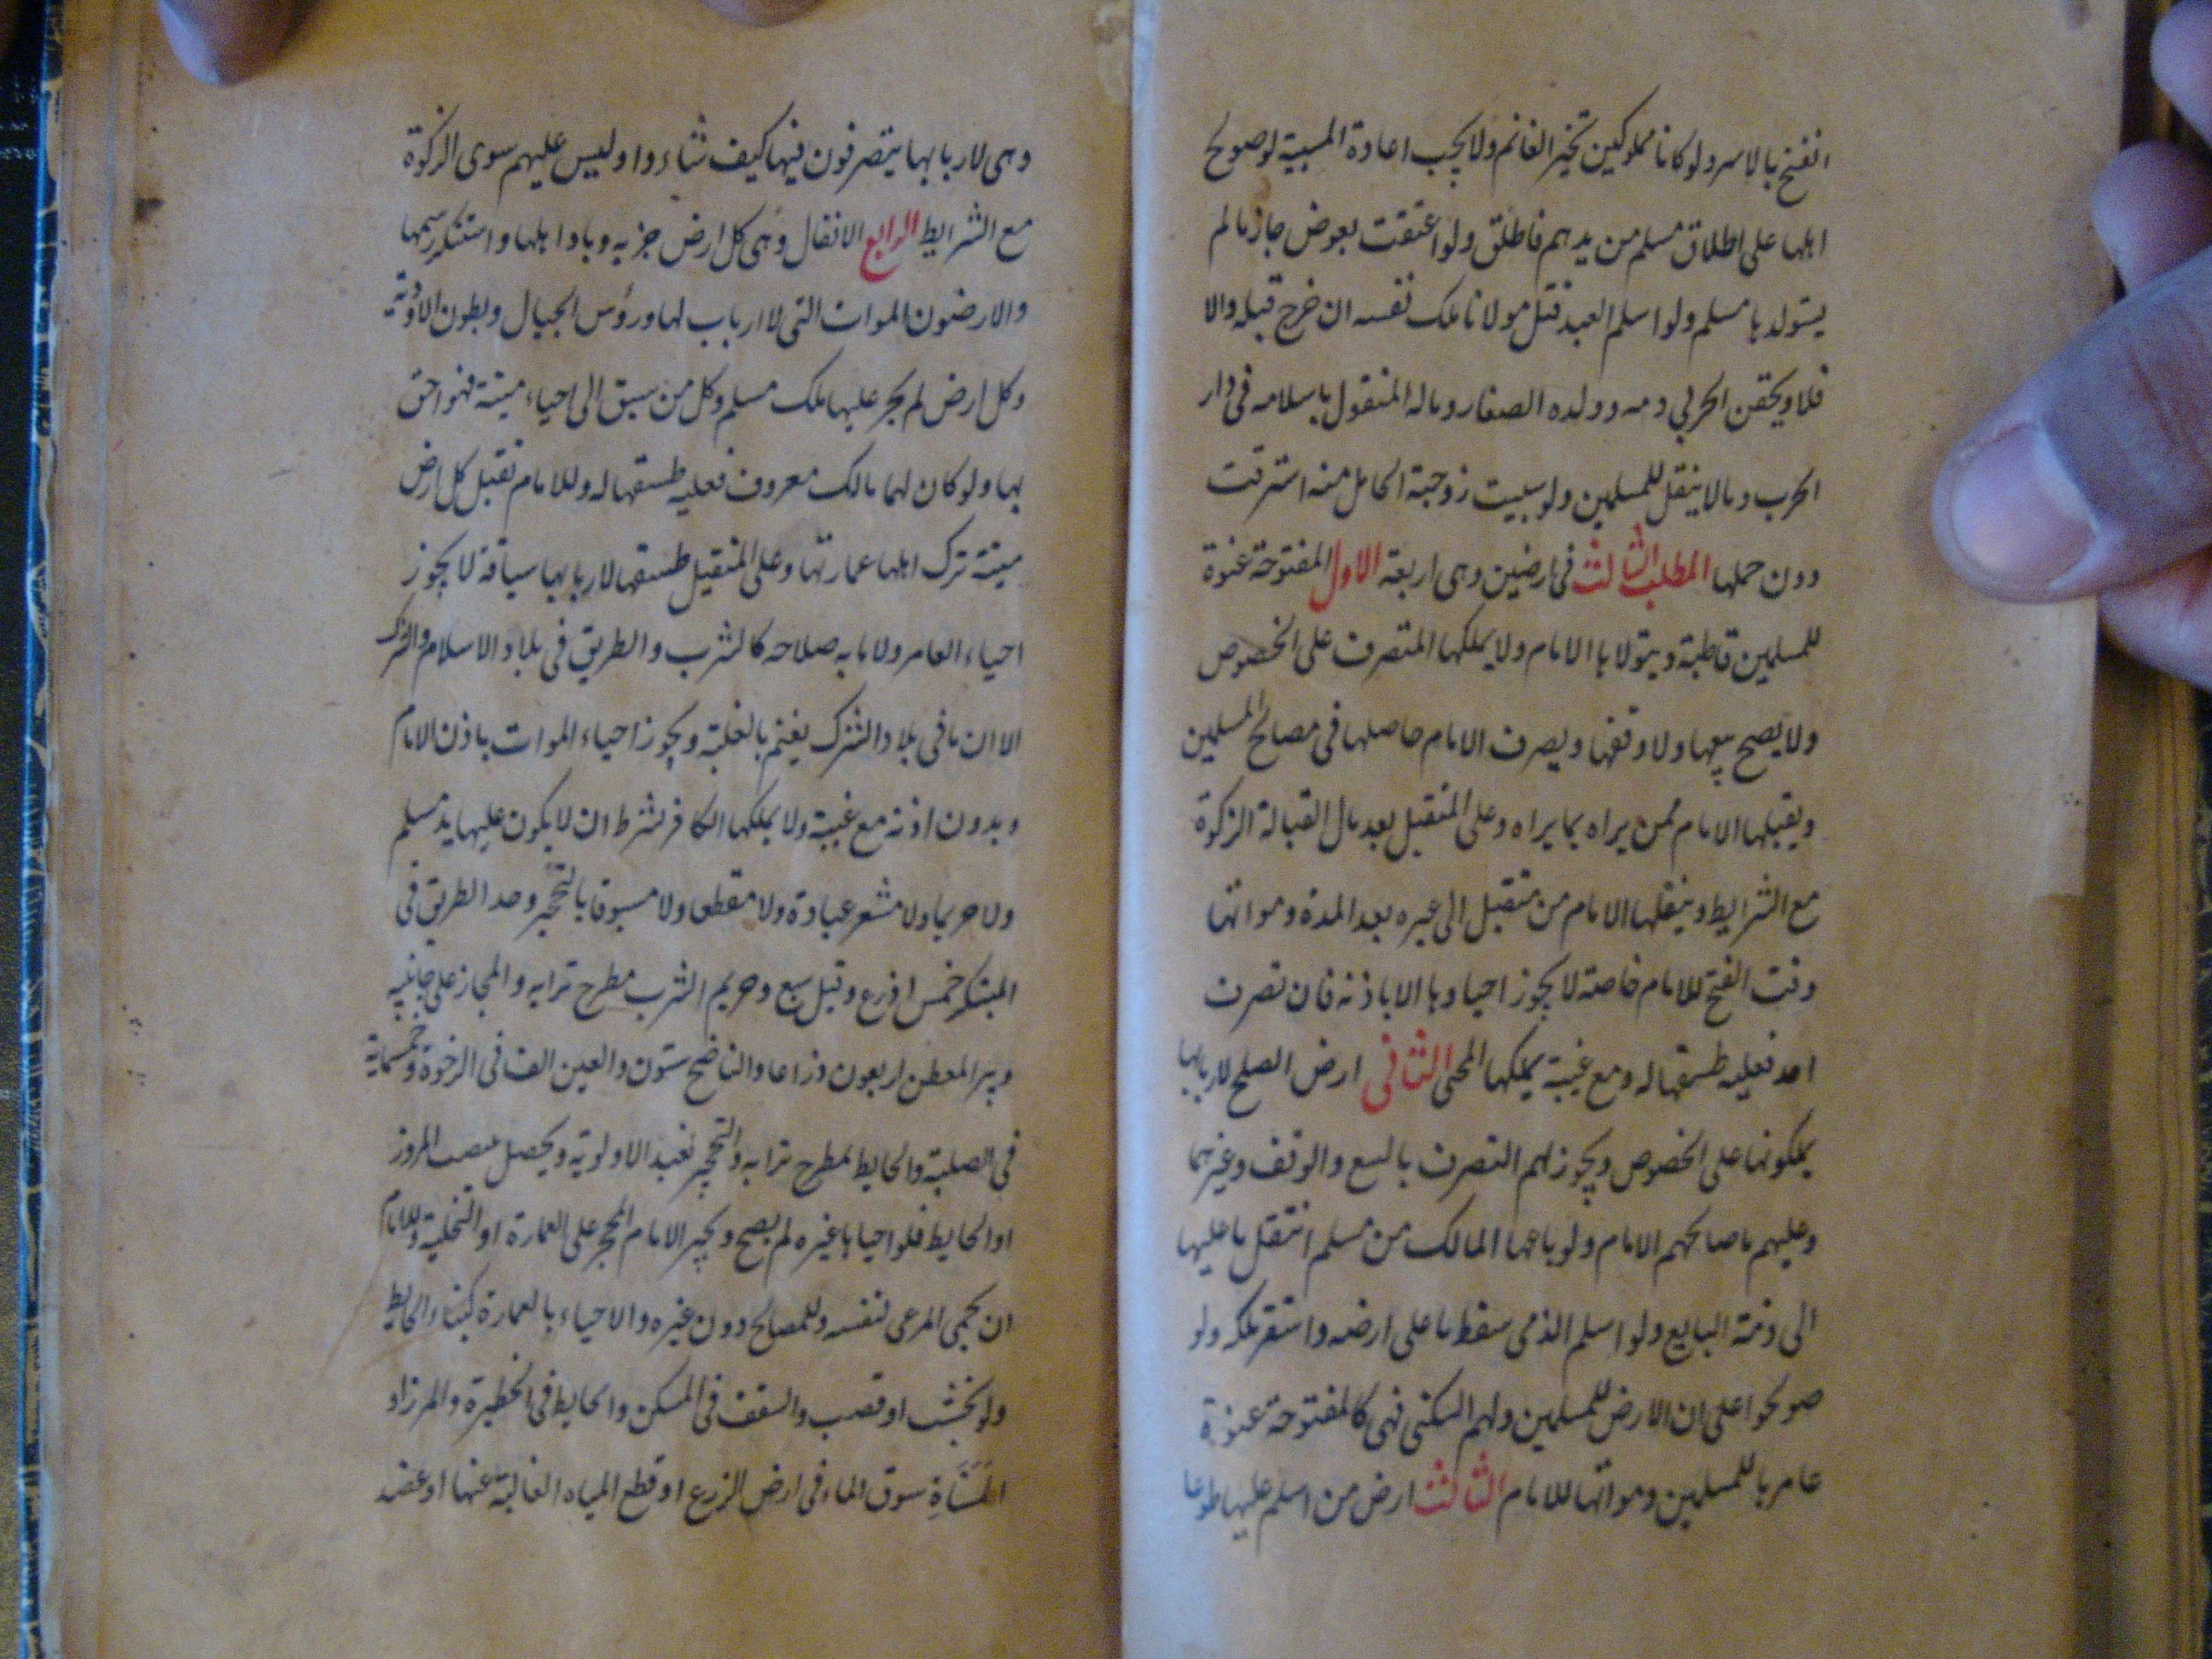 انفسخ بالاسر ولو كانا مملوكين تخير الغانم ولا يجب اعادة المسبية لو صولح
اهلها على اطلاق مسلم من يدهم فاطلق ولو اعتقت بعوض جاز ما لم
يستولدها مسلم ولو اسلم العبد قبل مولاه ملك نفسه ان خرج قبله والا
فلا ويحقن الحربي دمه وولده الصغار وماله المنقول باسلامه في دار
الحرب وما لا ينقل للمسلمين ولو سبيت زوجته الحامل منه استرقت
دون حملها المطلب الثالث في ارضين وهي اربعة الاول المفتوحة عنوة
للمسلمين قاطبة ويتولاها الامام ولا يملكها المتصرف على الخصوص
ولا يصح بيعها ولا وقفها ويصرف الامام حاصلها في مصالح المسلمين
ويقبلها الامام ممن يراه بما يراه وعلى المتقبل بعد مال القبالة الزكوة
مع الشرايط وينقلها الامام من متقبل الى غيره بعد المدة ومواتها
وقت الفتح للامام خاصة لا يجوز احياوها الا باذنه فان تصرف
احد فعليه طسقها له ومع غيبة يملكها المحيى الثاني ارض الصلح لاربابها
يملكونها على الخصوص ويجوز لهم التصرف بالبيع والوقف وغيرهما
وعليهم ما صالحهم الامام ولو باعها المالك من مسلم انتقل ما عليها
الى ذمة البايع ولو اسلم الذمى سقط ما على ارضه واستقر ملكه ولو
صولحوا على ان الارض للمسلمين ولهم السكنى فهى كالمفتوحة عنوة
عامرها للمسلمين ومواتها للامام الثالث ارض من اسلم عليها طوعا
وهى لاربابها يتصرفون فيها كيف شاءوا وليس عليهم سوى الزكوة
مع الشرايط الرابع الانفال وهى كل ارض خربه وباد اهلها واستنكر رسمها
والارضون الموات التى لا ارباب لها ورؤس الجبال وبطون الاودية
وكل ارض لم يجر عليها ملك مسلم وكل من سبق الى احياء ميتة فهو احق
بها ولو كان لها مالك معروف فعليه طسقها له وللامام تقبيل كل ارض
ميتة ترك اهلها عمارتها وعلى المتقبل طسقها لاربابها سياقة لا يجوز
احياء العامر ولا ما به صلاحه كالشرب والطريق في بلاد الاسلام والشرك
الا ان ما في بلاد الشرك يغنم بالغلبة ويجوز احياء الموات باذن الامام
وبدون اذنه مع غيبته ولا يملكها الكافر بشرط ان لا يكون عليها يد مسلم
ولا حريما ولا مشعر عبادة ولا مقطعا ولا مسبوقا بالتحجير وحد الطريق في
المبتكر خمس اذرع وقيل سبع وحريم الشرب مطرح ترابه والمجاز على جانبيه
وبير المعطن اربعون ذراعا والناضح ستون والعين الف في الرخوة وخمسماية
في الصلبة والحايط مطرح ترابه والتحجير تفيد الاولوية ويحصل بنصب المروز
او الحايط فلو احياها غيره لم يصح ويجبر الامام المحجر على العمارة او التخلية وللامام
ان يحمى المرعى لنفسه وللمصالح دون غيره والاحياء بالعمارة كبناء الحايط
ولو بخشب او قصب والسقف في المسكن والحايط في الحظيرة والمرز او
المسناة وسوق الماء في ارض الزرع او قطع المياه الغالبة عنها او عضد